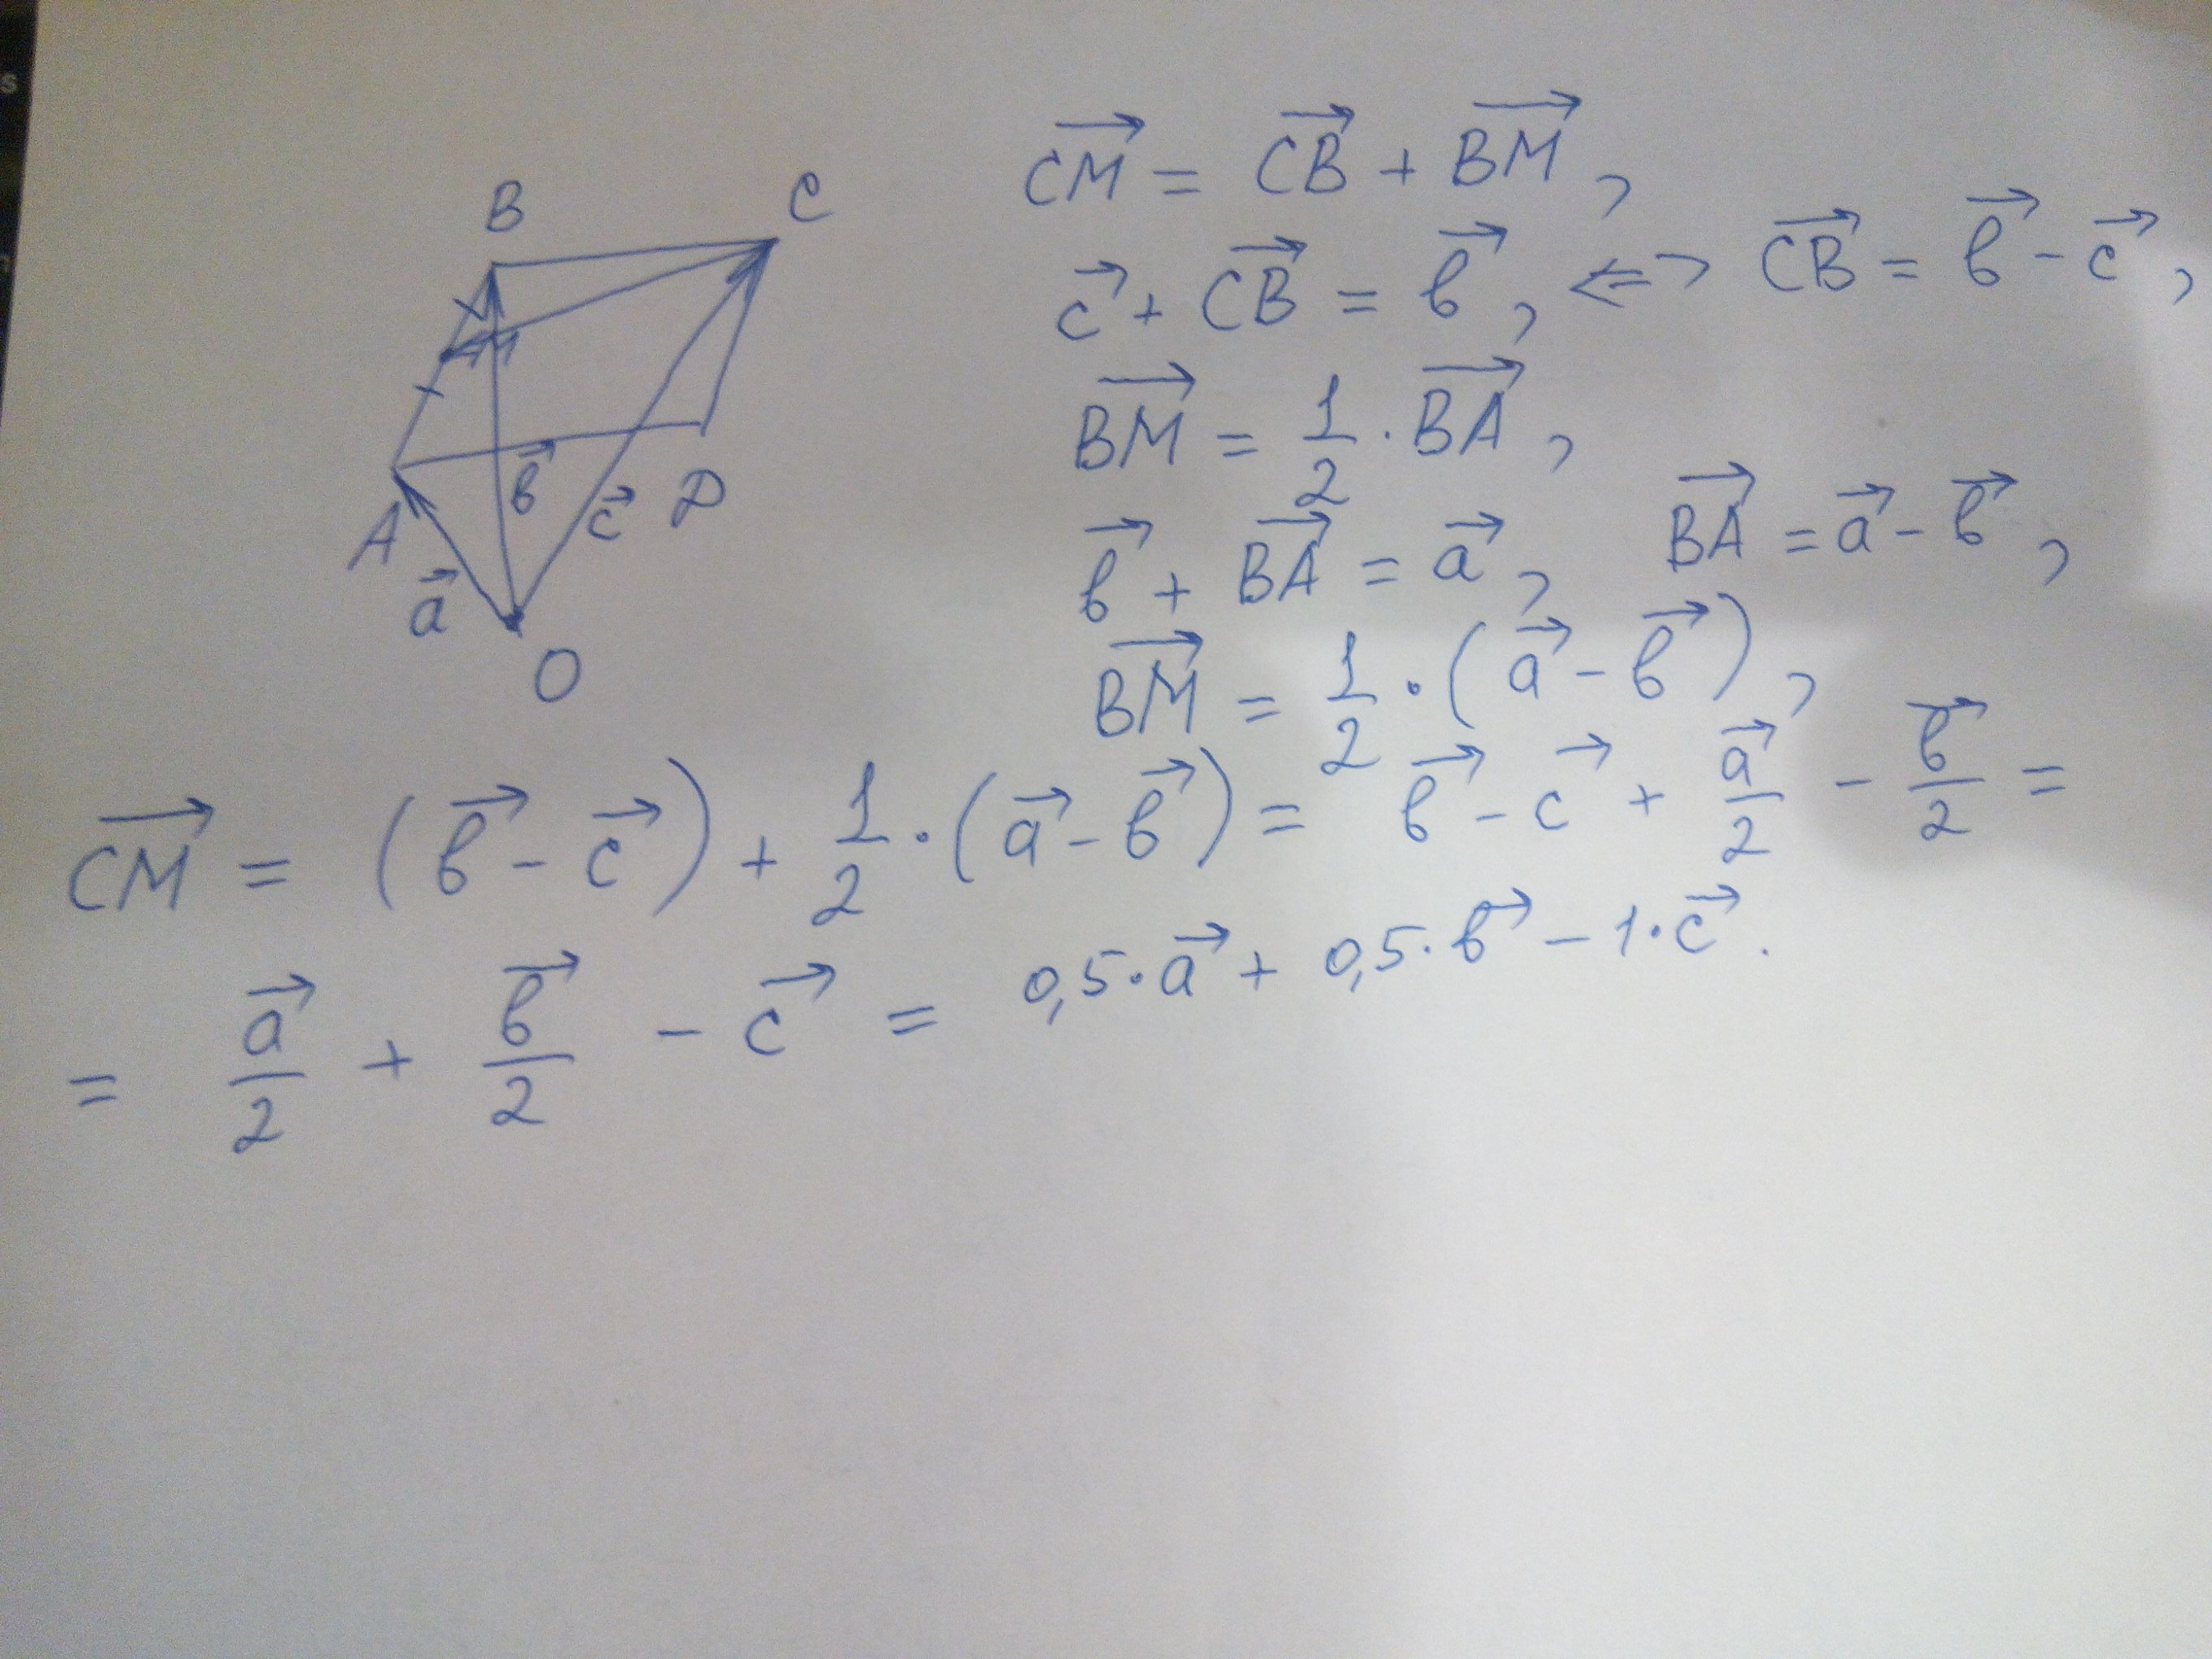 B C
M
A b⃗ c⃗ D
a⃗
O
C͞M⃗ = C͞B⃗ + B͞M⃗ ,
c⃗ + C͞B⃗ = b⃗ , <=> C͞B⃗ = b⃗ - c⃗ ,
B͞M⃗ = 1/2 · B͞A⃗ ,
b⃗ + B͞A⃗ = a⃗ , B͞A⃗ = a⃗ - b⃗ ,
B͞M⃗ = 1/2 · ( a⃗ - b⃗ ) ,
C͞M⃗ = ( b⃗ - c⃗ ) + 1/2 · ( a⃗ - b⃗ ) = b⃗ - c⃗ + a⃗/2 - b⃗/2 =
= a⃗/2 + b⃗/2 - c⃗ = 0,5 · a⃗ + 0,5 · b⃗ - 1 · c⃗ .